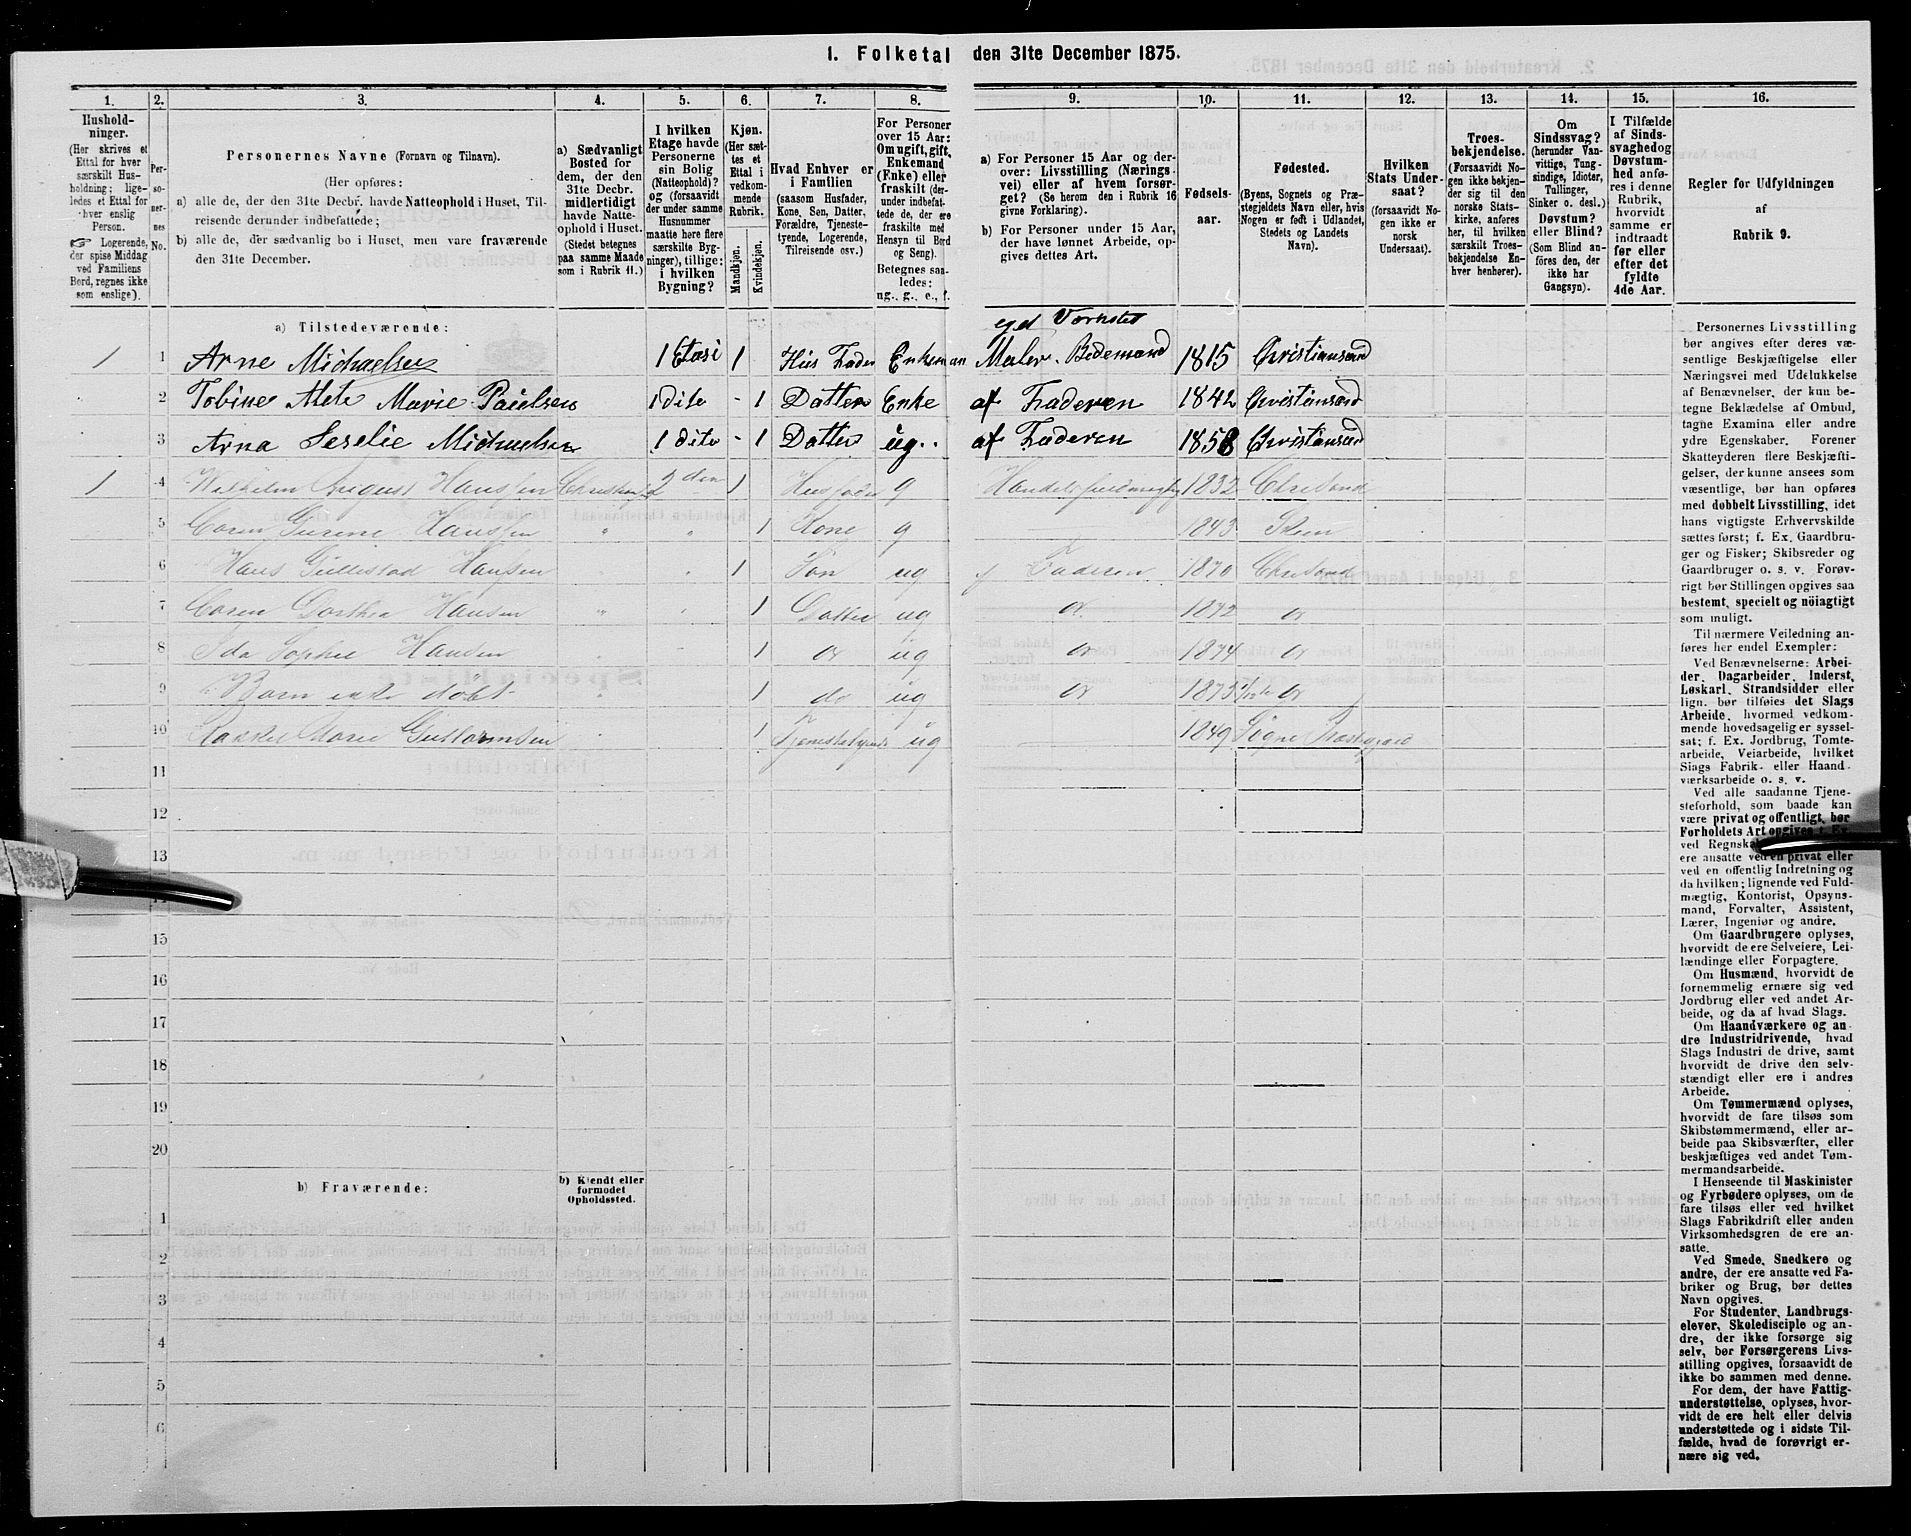 1. Folketal den 31te December 1875.
1. 2. 3. 4. 5. 6. 7. 8. 9. 10. 11. 12. 13. 14. 15. 16.
Hushold-
ninger.
(Her skrives et
Ettal for hver
særskilt Hus-
holdning; lige-
ledes et Ettal for
hver enslig
Person.
☞ Logerende,
der spise Middag
ved Familiens
Bord, regnes ikke
som enslige).
Per-
so-
ner-
nes
No.
Personernes Navne (Fornavn og Tilnavn).
(Her opføres:
a) alle de, der den 31te Decbr. havde Natteophold i Huset, Til-
reisende derunder indbefattede;
b) alle de, der sædvanlig bo i Huset, men vare fraværende
den 31te December.
a) Sædvanligt
Bosted for
dem, der den
31te Decbr.
midlertidigt
havde Natte-
ophold i Huset.
(Stedet betegnes
paa samme Maade
som i Rubrik 11.)
I hvilken
Etage havde
Personerne
sin Bolig
(Natteophold)?
og (forsaavidt
der under samme
Husnummer
maatte høre flere
særskilte Byg-
ninger), tillige:
i hvilken
Bygning?
Kjøn.
(Her sæt-
tes et
Ettal i
vedkom-
mende
Rubrik.
Mandkjøn.
Kvindekjøn.
Hvad Enhver er
i Familien
(saasom Husfader,
Kone, Søn, Datter,
Forældre, Tjeneste-
tyende, Logerende,
Tilreisende osv.)
For Personer
over 15 Aar:
Om ugift, gift,
Enkemand
(Enke) eller
fraskilt (der-
under indbefat-
tede de, der ere
fraskilte med
Hensyn til Bord
og Seng).
Betegnes saa-
ledes:
ug., g., e., f.
a) For Personer 15 Aar og der-
over: Livsstilling (Nærings-
vei) eller af hvem forsør-
get? (Se herom den i Rubrik 16
givne Forklaring).
b) For Personer under 15 Aar,
der have lønnet Arbeide, op-
gives dettes Art.
Fødsels-
aar.
Fødested.
(Byens, Sognets og Præ-
stegjeldets Navn eller, hvis
Nogen er født i Udlandet,
Stedets og Landets
Navn).
Hvilken
Stats Under-
saat?
(forsaavidt No-
gen ikke er
norsk
Undersaat).
Troes-
bekjendelse.
(Forsaavidt No-
gen ikke bekjen-
der sig til den
norske Stats-
kirke, anføres
her, til hvilken
særskilt Troes-
bekjendelse En-
hver henhører).
Om
Sindssvag?
(herunder Van-
vittige, Tung-
sindige, Idioter,
Tullinger,
Sinker o. desl.)
Døvstum?
eller Blind?
(Som Blind an-
føres den, der
ikke har
Gangsyn).
I Tilfælde
af Sinds-
svaghed og
Døvstum-
hed anfø-
res i denne
Rubrik,
hvorvidt
samme er
indtraadt
før eller
efter det
fyldte
4de Aar.
Regler for Udfyldningen
af
Rubrik 9.
a) Tilstedeværende:
eget Værksted
1 1 Arne Michaelsen 1 Etasi 1 Hus Fader Enkeman Maler. Bedemand 1815 Christiansand
2 Tobine Alete Marie Paulsen 1 dito - 1 Datter Enke af Faderen 1842 Christiansand
3 Arna Michaelsen 1 dito - 1 Datter ug. af Faderen 1858 Christiansand
1 4 Wilhelm August Hanssen 2 den 1 Husfader g 1832 Chr.Sand
5 Hanssen " " 1 Kone g 1843
6 Hans Hansen 1 Søn ug Faderen 1870 Chr.Sand
7 Caren Dorthea Hansen " 1 Datter ug do 1872 do
8 Ida Sophie Hansen 1 do ug do 1874 do
9 Barn ikke døbt 1 do ug do do
10 Marie Guttormsen 1 ug 1849 Søgne Præstegjæld
11
12
13
15
16
17
18
19
20
b) Fraværende:
b) Kjendt eller
formodet
Opholdssted.
1
2
3
4
5
6
Personernes Livsstilling
bør angives efter deres væ-
sentlige Beskjæftigelse eller
Næringsvei med Udelukkelse
af Benævnelser, der kun be-
tegne Beklædelse af Ombud,
tagne Examina eller andre
ydre Egenskaber. Forener
Skatteyderen flere Beskjæfti-
gelser, der kunne ansees som
væsentlige, bør han opføres
med dobbelt Livsstilling, idet
hans vigtigste Erhvervskilde
sættes først; f. Ex. Gaardbru-
ger og Fisker; Skibsreder og
Gaardbruger o. s. v. Forøv-
rigt bør Stillingen opgives saa
bestemt, specielt og nöiagtigt
som muligt.
Til nærmere Veiledning an-
føres her endel Exempler:
Ved Benævnelserne: Arbei-
der, Dagarbeider, Inderst,
Løskarl, Strandsidder eller
lign. bør tilføies det Slags
Arbeide, hvormed vedkom-
mende hovedsagelig er syssel-
sat; f. Ex. Jordbrug, Tomte-
arbeide, Veiarbeide, hvilket
Slags Fabrik- eller Haand-
værksarbeide o. s. v.
Ved alle saadanne Tjene-
steforhold, som baade kan
være privat og offentligt, bør
Forholdets Art opgives f. Ex.
ved
ere ansatte ved en privat eller
ved en offentlig Indretning og
da hvilken; lignende ved Fuld-
mægtig, Kontorist, Opsyns-
mand, Forvalter, Assistent,
Lærer, Ingeniør og andre.
Om Gaardbrugere oplyses,
hvorvidt de ere Selveiere, Lei-
lændinge eller Forpagtere.
Om Husmænd, hvorvidt de
fornemmelig ernære sig ved
Jordbrug eller ved andet Ar-
beide, og da af hvad Slags.
Om Haandværkere og an-
dre Industridrivende, hvad
Slags Industri de drive, samt
hvorvidt de drive den selv-
stændigt eller ere i andres
Arbeide.
Om Tømmermænd oplyses,
hvorvidt de fare tilsøs som
Skibstømmermænd, eller ar-
beide paa Skibsværfter, eller
beskjæftiges ved andet Tøm-
mermandsarbeide.
I Henseende til Maskinister
og Fyrbødere oplyses, om de
fare tilsøs eller ved hvilket
Slags Fabrikdrift eller anden
Virksomhedsgren de ere an-
satte.
Ved Smede, Snedkere og
andre, der ere ansatte ved Fa-
briker og Brug, bør dettes
Navn opgives.
For Studenter, Landbrugs-
elever, Skoledisciple og an-
dre, der ikke forsørge sig
selv, bør Forsørgerens Livs-
stilling opgives, forsaavidt de
ikke bo sammen med denne.
For dem, der have Fattig-
understøttelse, oplyses, hvor-
vidt de ere helt eller delvis
understøttede og i sidste Til-
fælde, hvad de forøvrigt er-
nære sig ved.